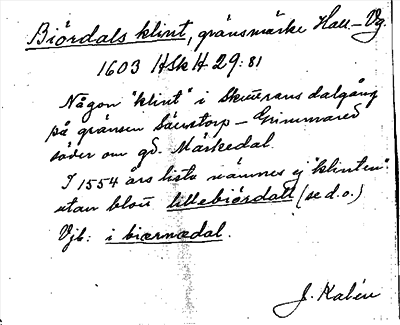 Biördals klint, gränsmärke Hall-Vg.
1603 HSkH 29:81
Någon "klint" i Skuttrans dalgång
på gränsen Sävstorp - Grimmared
söder om gd. Märkedal.
I 1554 års lista nämnes ej "klinten"
utan blott lillebiördall (se d.o.)
Vjb: i biærnædal.
J. Kalén